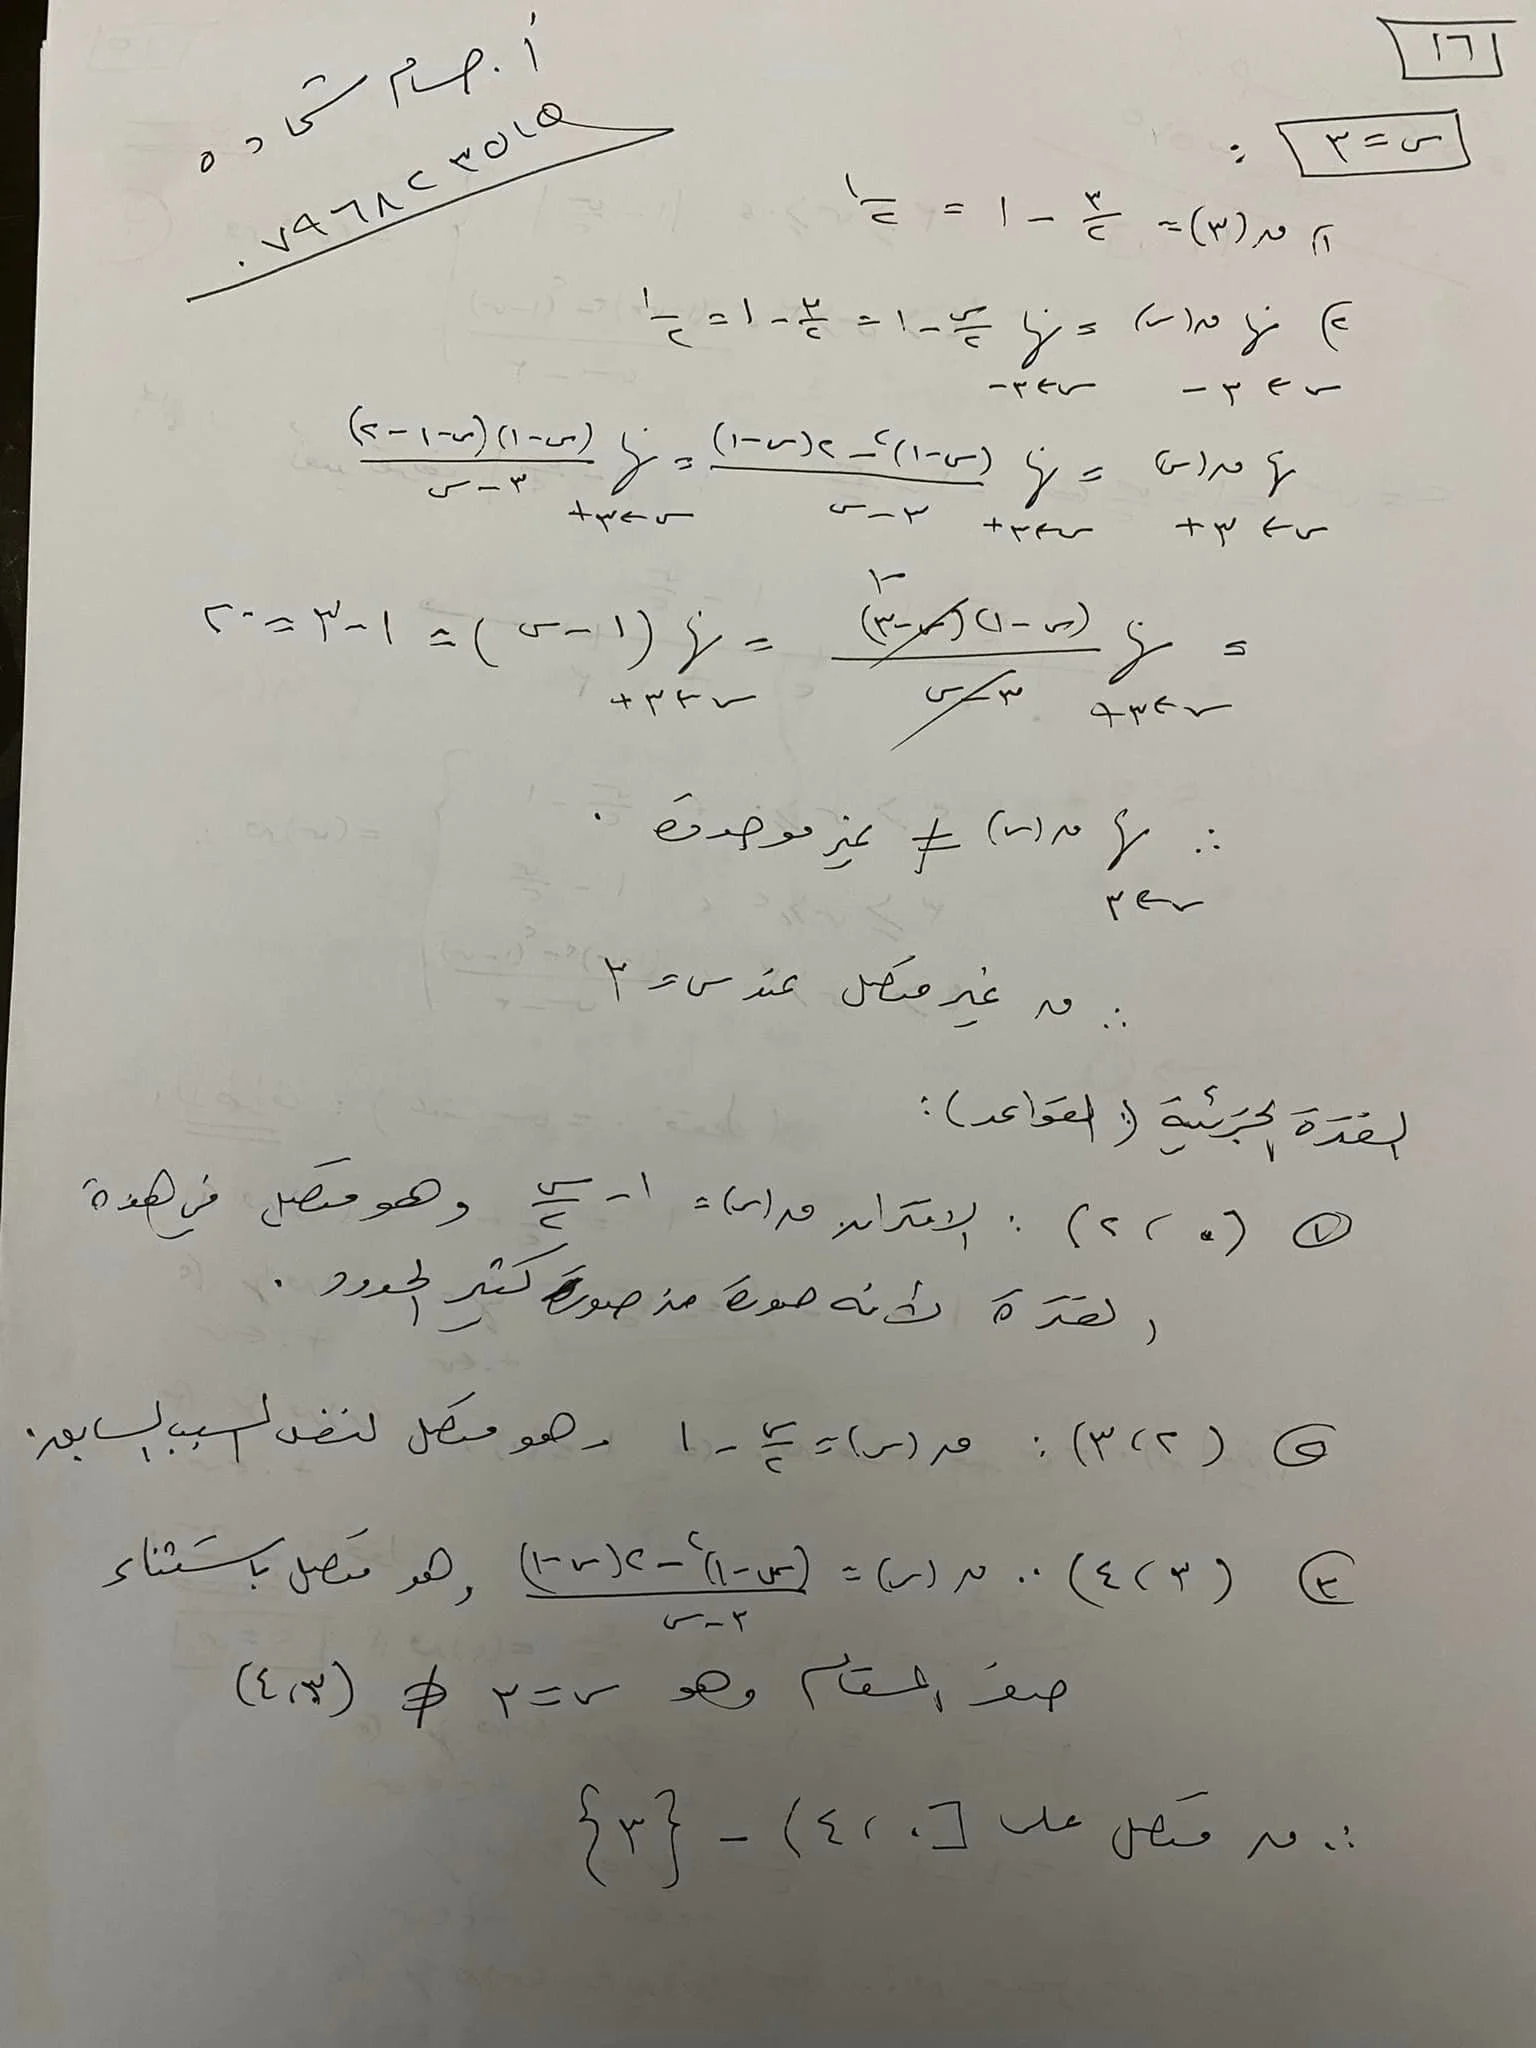 ١٦
أ. حسام شحادة
٠٧٩٦٨٢٣٥١٥
س = ٣ :
١) ق(٣) = ٣/٢ − ١ = ١/٢
٢) نها س←٣− ق(س) = نها س←٣− س/٢ − ١ = ٣/٢ − ١ = ١/٢
نها س←٣+ ق(س) = نها س←٣+ ((س−١)² − ٢(س−١))/(٣−س) = نها س←٣+ ((س−١)(س−١−٢))/(٣−س)
= نها س←٣+ ((س−١)(س−٣))/(٣−س) = نها س←٣+ (١−س) = ١−٣ = −٢
∴ نها س←٣ ق(س) ≠ غير موجودة .
∴ ق غير متصل عند س = ٣
الفترة الجزئية (القواعد) :
١ (٠ ، ٢) : الاقتران ق(س) = ١ − س/٢ وهو متصل في هذه
الفترة لأنه صورة من صورة كثير الحدود .
٢ (٢ ، ٣) : ق(س) = س/٢ − ١ وهو متصل لنفس السبب السابق .
٣ (٣ ، ٤) : ق(س) = ((س−١)² − ٢(س−١))/(٣−س) وهو متصل باستثناء
صفر المقام وهو س = ٣ ∉ (٣ ، ٤)
∴ ق متصل على [٠ ، ٤) − {٣}